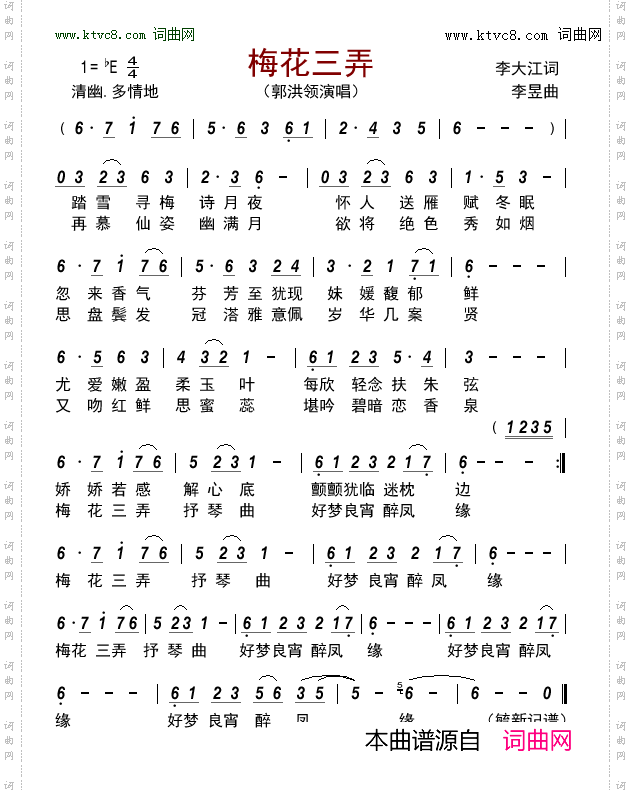 www.ktvc8.com 词曲网
www.ktvc8.com 词曲网
梅花三弄
1=♭E 4/4
李大江词
清幽.多情地
(郭洪领演唱)
李昱曲
( 6· 7 1 7 6 | 5· 6 3 6 1 | 2· 4 3 5 | 6 - - ) |
0 3 2 3 6 3 | 2· 3 6 - | 0 3 2 3 6 3 | 1· 5 3 - |
踏 雪 寻 梅 诗 月 夜 怀 人 送 雁 赋 冬 眠
再 慕 仙 姿 幽 满 月 欲 将 绝 色 秀 如 烟
6· 7 1 7 6 | 5· 6 3 2 4 | 3· 2 1 7 1 | 6 - - - |
忽 来 香 气 芬 芳 至 犹现 妹 媛 馥 郁 鲜
思 盘 鬓 发 冠 溚 雅 意佩 岁 华 几 案 贤
6· 5 6 3 | 4 3 2 1 - | 6 1 2 3 5· 4 | 3 - - - |
尤 爱 嫩 盈 柔 玉 叶 每欣 轻念 扶 朱 弦
又 吻 红 鲜 思 蜜 蕊 堪吟 碧暗 恋 香 泉
( 1 2 3 5 |
6· 7 1 7 6 | 5 2 3 1 - | 6 1 2 3 2 1 7 | 6 - - - :||
娇 娇 若 感 解 心 底 颤颤犹临 迷枕 边
梅 花 三 弄 抒 琴 曲 好梦良宵 醉凤 缘
6· 7 1 7 6 | 5 2 3 1 - | 6 1 2 3 2 1 7 | 6 - - - |
梅 花 三 弄 抒 琴 曲 好梦 良宵 醉 凤 缘
6· 7 1 7 6 | 5 2 3 1 - | 6 1 2 3 2 1 7 | 6 - - - | 6 1 2 3 2 1 7 |
梅花 三弄 抒 琴 曲 好梦良宵 醉凤 缘 好梦良宵 醉凤
6 - - - | 6 1 2 3 5 6 3 5 | 5 - 5 6 - | 6 - - 0 ||
缘 好梦 良宵 醉 凤 缘 (毓新记谱)
本曲谱源自 词曲网